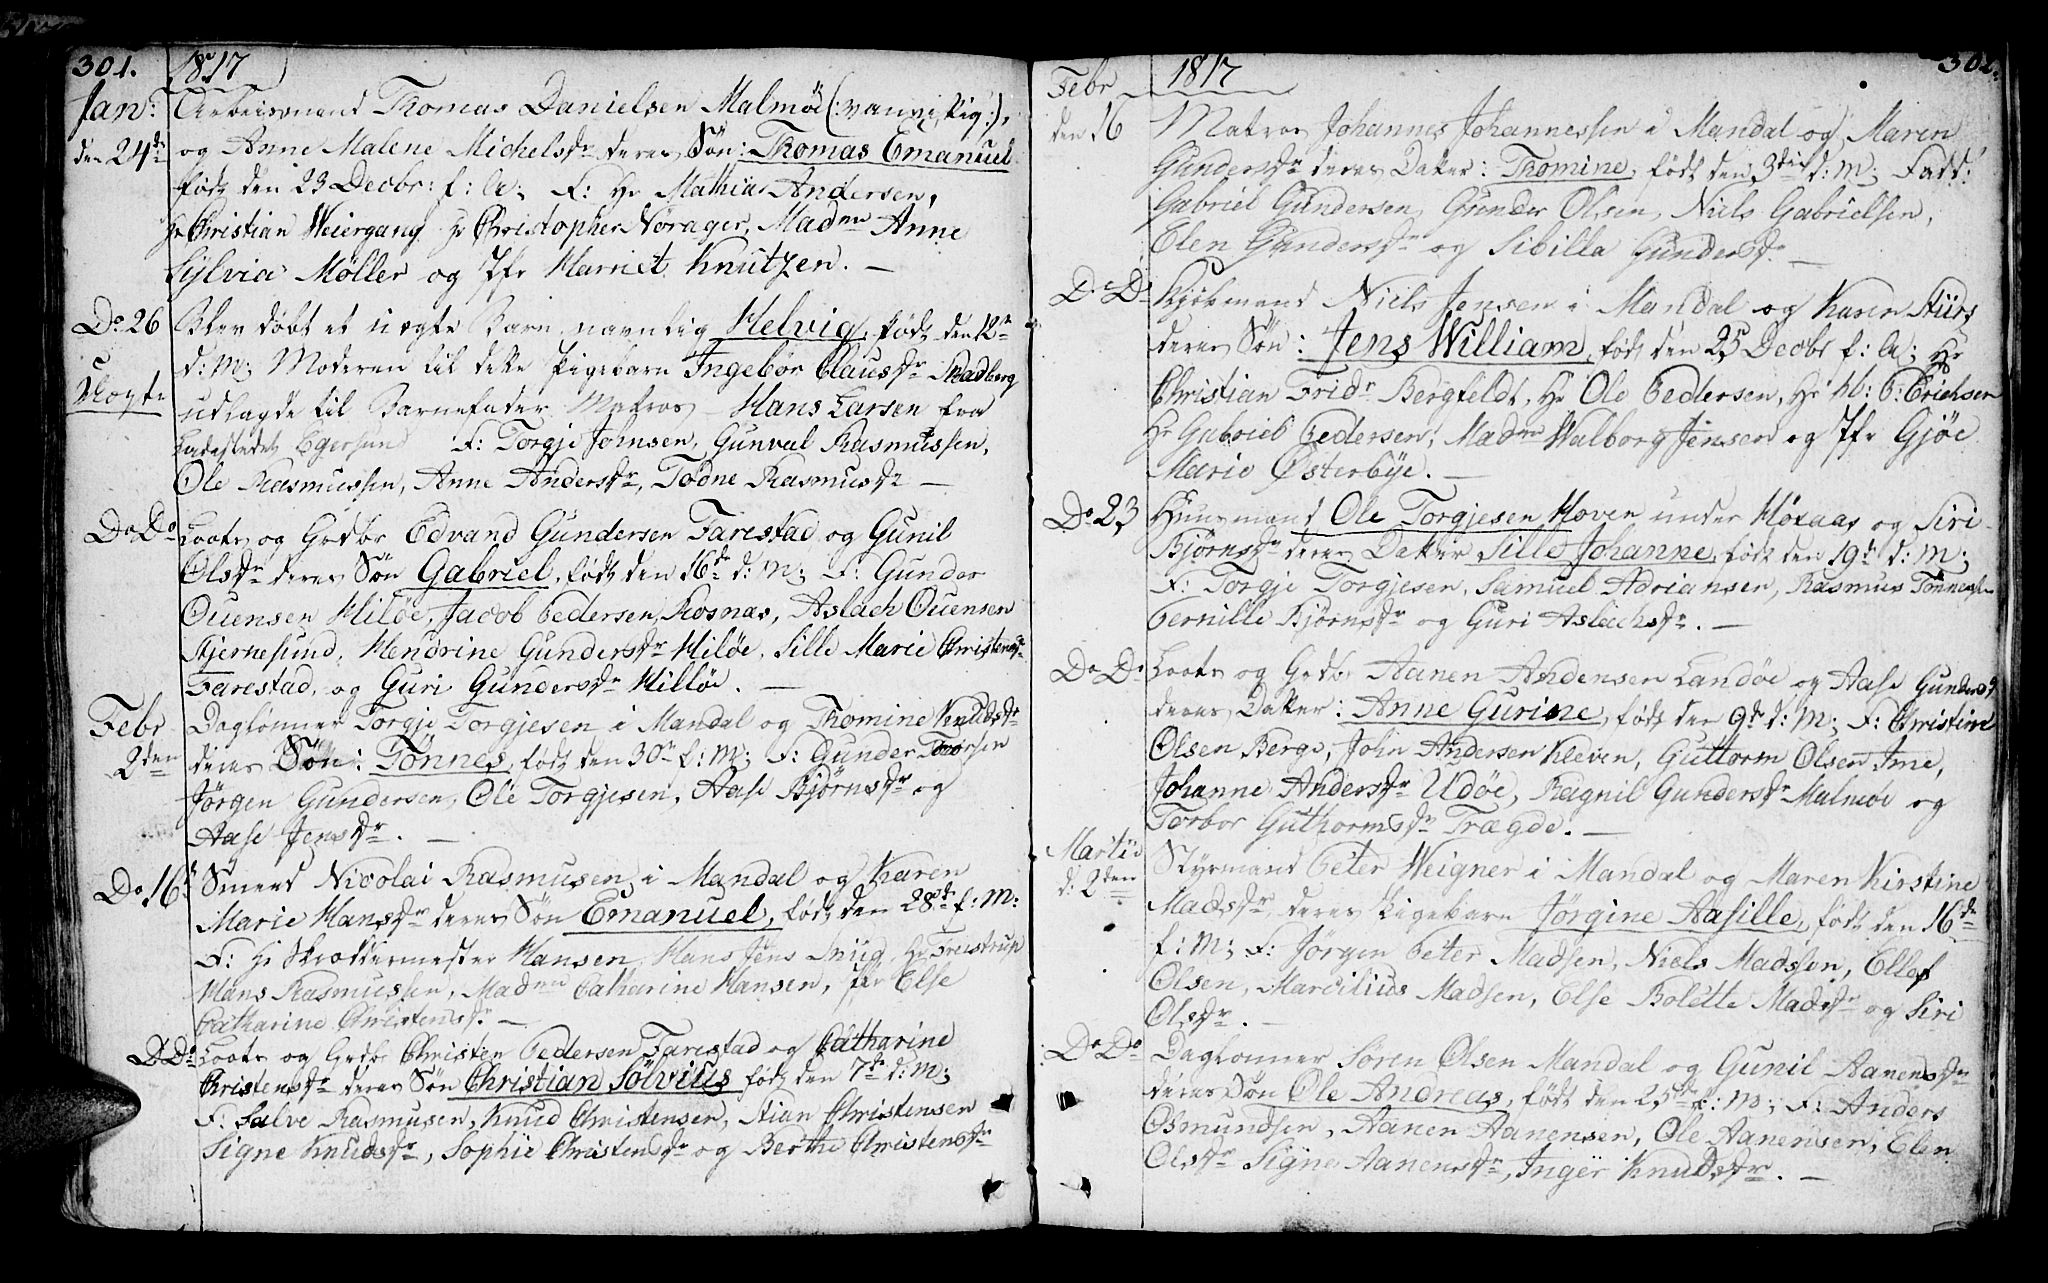 301.
1817
Jan:
den 24de
Arbeidsmand Thomas Danielsen Malmøe (: vanvittig :),
og Anne Malene Michelsdr deres Søn: Thomas Emanuel
født den 23 Decbr: f: A; F: Hr Mathias Andersen,
Hr Christian Weiergang Hr Christopher Nørager, Madme Anne
Sylvia Møller og Jfr Harriet Knutzen. —
Do 26
Uægte
Blev døbt et uægte Barn navnlig Helvig, født den 12te
d: M; Moderen til dette Pigebarn Ingebor Clausdr Skadberg
udlagde til Barnefader Matros Hans Larsen fra
Ladestedet Egersund F: Torgje Johnsen, Gunval Rasmussen,
Ole Rasmussen, Anne Andersdr, Todne Rasmusdr —
Do Do
Loots og Grdbr Edvand Gundersen Farestad og Gunil
Olsdr deres Søn Gabriel, født den 16de d: M; F: Gunder
Ouensen Hiløe, Jacob Pedersen Rosnas, Aslach Ouensen
Skjernesund, Hendrine Gundersdr Hiløe, Sille Marie Christensdr
Farestad, og Guri Gundersdr Hilløe. —
Febr
2den
Daglønner Torgje Torgjesen i Mandal og Thomine Knudsdr
deres Søn: Tønnes, født den 30te f: M; F: Gunder
Jørgen Gundersen, Ole Torgjesen, Aase Bjørnsdr og
Aase Jensdr. —
Do 16d
Smeed Nicolai Rasmusen i Mandal og Karen
Marie Hansdr deres Søn Emanuel, født den 28de f: M:
F: Hr Skræddermester Hansen, Hans Jens Hr Treistrup
Hans Rasmussen, Madme Catharine Hansen, Jfr Else
Catharine Christensdr —
D Do
Loots og Grdbr Christen Pedersen Farestad og Catharine
Christensdr deres Søn Christian Sølvius født den 7de d: M;
F: Salve Rasmusen, Knud Christensen, Stian Christensen
Signe Knudsdr, Sophie Christensdr og Berthe Christensdr
302.
1817
Febr
den 16
Matros Johannes Johannessen i Mandal og Maren
Gundersdr deres Datter: Thomine, født den 3die d: M; Fadd:
Gabriel Gundersen, Gunder Olsen, Niels Gabrielsen,
Elen Gundersdr og Sibilla Gundersdr —
Do D
Kjøbmand Niels Jensen i Mandal og Karen Stürs
deres Søn: Jens William, født den 25 Decbr f: A; Hr
Christian Fridr Bergfeldt, Hr Ole Pedersen, Hr Erichsen
Hr Gabriel Pedersen, Madme Walborg Jensen og Jfr Gjøe
Marie Østerbye. —
Do 23
Huusmand Ole Torgjesen Hoven under Høxaas og Siri
Bjørnsdr deres Datter Sille Johanne, født den 19de d: M;
F: Torgje Torgjesen, Samuel Adriansen, Rasmus Tønnesen
Pernille Bjørnsdr og Guri Aslachsdr. —
Do Do
Loots og Grdbr Aanen Andensen Landøe og Aase Gundersd
deres Datter: Anne Gurine, født den 9de d: M; F: Christen
Olsen Berge, John Andersen Kleven, Guttorm Olsen Ime,
Johanne Andersdr Udøe, Ragnil Gundersdr Malmøe og
Torbor Guthormsdr Trægde. —
Martii
d: 2den
Styrmand Peter Weigner i Mandal og Maren Kirstine
Madsdr, deres Pigebarn Jørgine Aasille, født den 16de
f: M; F: Jørgen Peter Madsen, Niels Madssen, Ellef
Olsen, Marcilius Madsen, Else Bolette Madsdr og Siri
Olsdr. —
Do Do
Daglønner Søren Olsen Mandal og Gunil Aanensdr
deres Søn Ole Andreas, født den 25de f: M; F: Anders
Osmundsen, Aanen Aanensen, Ole Aanensen, Elen
Olsdr Signe Aanensdr, Inger Knudsdr. —